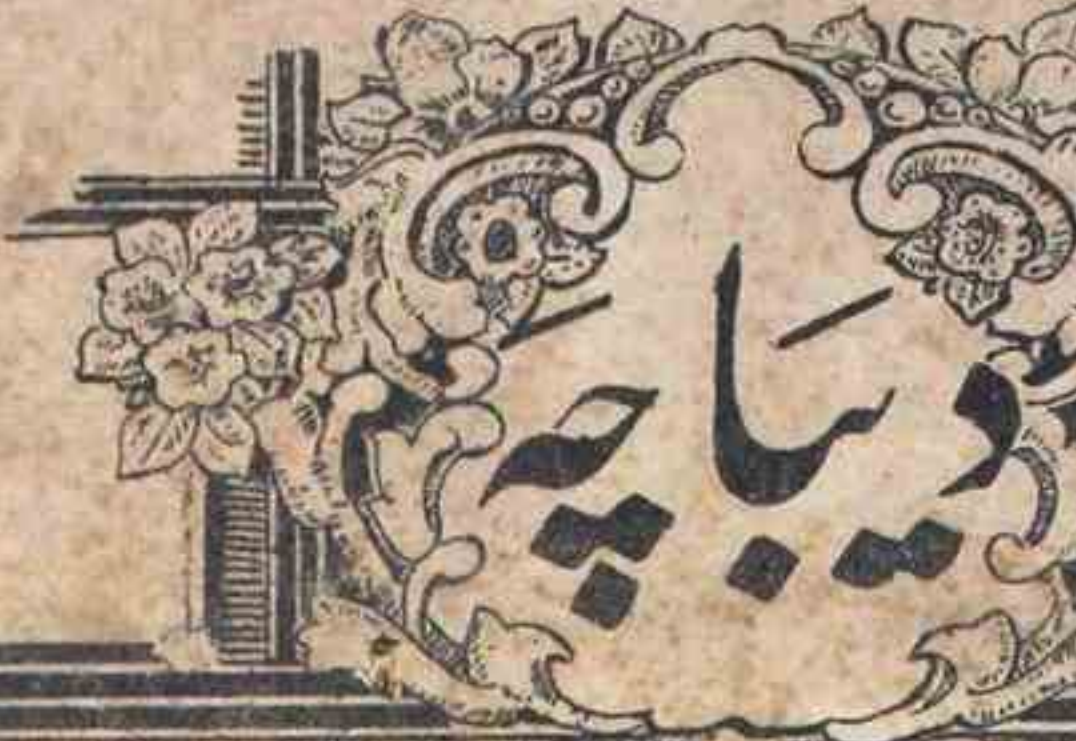 دیَباچَه